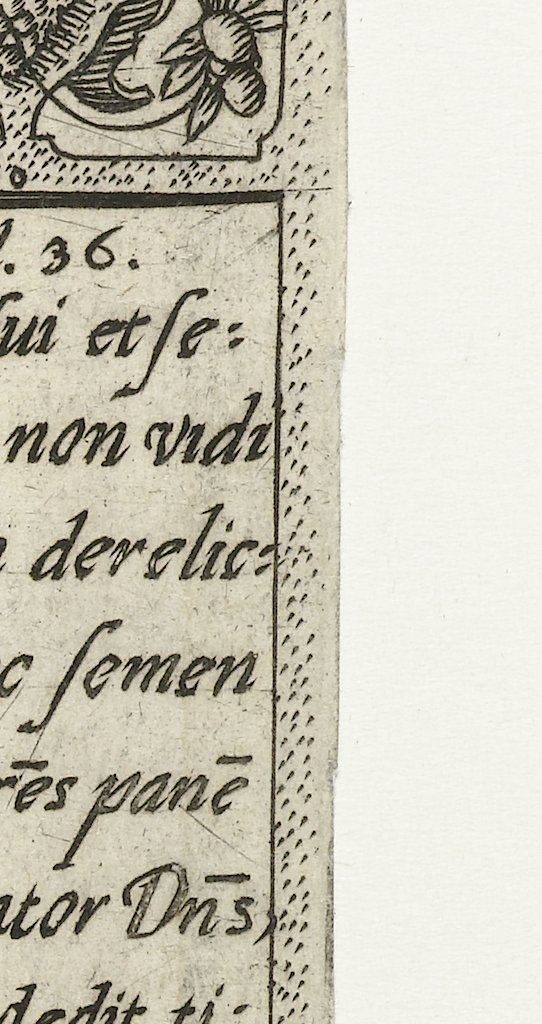 . 36.
ſui et ſe:
non vidi
derelic:
c ſemen
r̄es panē
ator Dn̄s,
dedit ti: